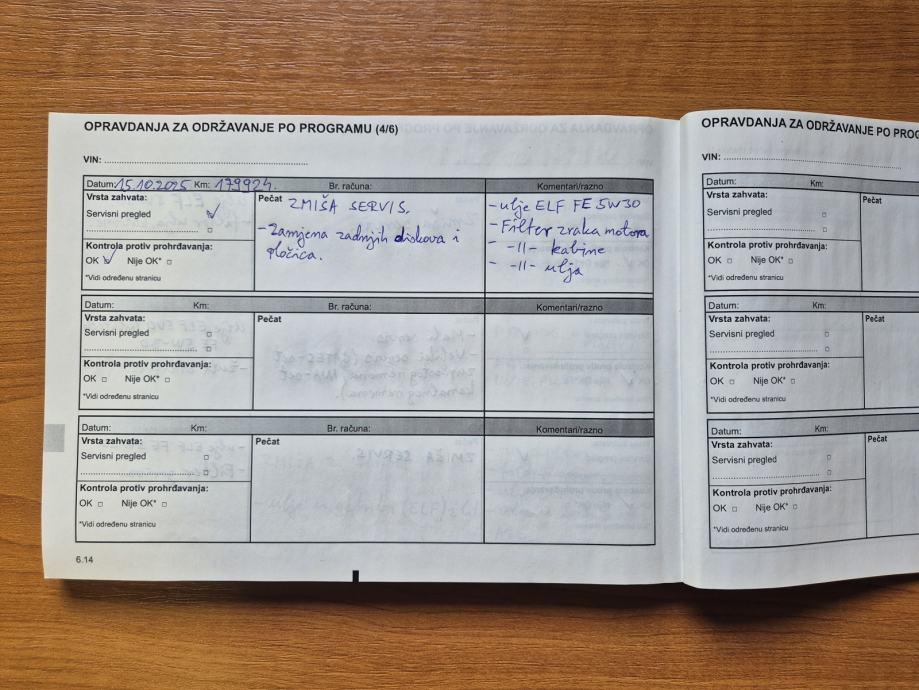 OPRAVDANJA ZA ODRŽAVANJE PO PROGRAMU (4/6)
VIN:
Datum: 15.10.2025 Km: 179924. Br. računa: Komentari/razno
Vrsta zahvata:
Servisni pregled
Kontrola protiv prohrđavanja:
OK Nije OK*
*Vidi određenu stranicu
Pečat ZMIŠA SERVIS.
- Zamjena zadnjih diskova i
pločica.
- ulje ELF FE 5W30
- Filter zraka motora
- -11- kabine
- -11- ulja
Datum: Km: Br. računa: Komentari/razno
Vrsta zahvata:
Servisni pregled
Kontrola protiv prohrđavanja:
OK Nije OK*
*Vidi određenu stranicu
Pečat
Datum: Km: Br. računa: Komentari/razno
Vrsta zahvata:
Servisni pregled
Kontrola protiv prohrđavanja:
OK Nije OK*
*Vidi određenu stranicu
Pečat
6.14
OPRAVDANJA ZA ODRŽAVANJE PO PROG
VIN:
Datum: Km:
Vrsta zahvata:
Servisni pregled
Kontrola protiv prohrđavanja:
OK Nije OK*
*Vidi određenu stranicu
Pečat
Datum: Km:
Vrsta zahvata:
Servisni pregled
Kontrola protiv prohrđavanja:
OK Nije OK*
*Vidi određenu stranicu
Pečat
Datum: Km:
Vrsta zahvata:
Servisni pregled
Kontrola protiv prohrđavanja:
OK Nije OK*
*Vidi određenu stranicu
Pečat